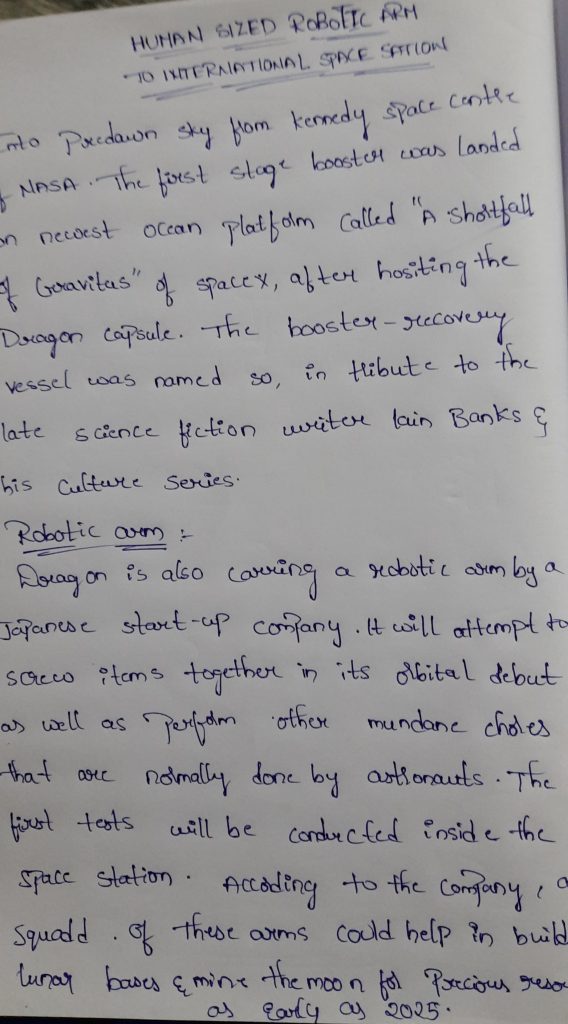 HUMAN SIZED ROBOTIC ARM
TO INTERNATIONAL SPACE SATION
Into Predawn sky from kennedy space centre
of NASA. The first stage booster was landed
on newest ocean platform called "A shortfall
of Gravitas" of spacex, after hositing the
Dragon capsule. The booster-recovery
vessel was named so, in tribute to the
late science fiction writer Iain Banks &
his culture series.
Robotic arm :-
Dragon is also carring a robotic arm by a
Japanese start-up company. It will attempt to
screw items together in its orbital debut
as well as perform other mundane chores
that are normally done by astronauts. The
first tests will be conducted inside the
space station. Accoding to the company, a
squadd. of these arms could help in build
lunar bases & mine the moon for Precious resou
as early as 2025.